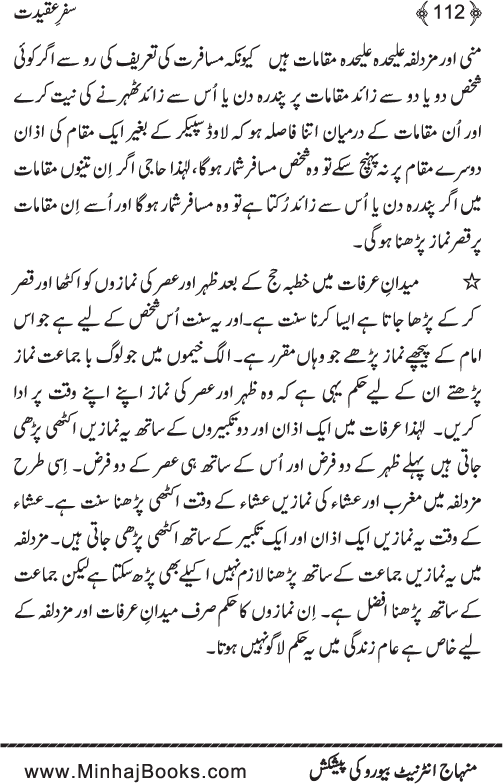 سفرِ عقیدت ﴿112﴾
منی اور مزدلفہ علیحدہ علیحدہ مقامات ہیں کیونکہ مسافرت کی تعریف کی رو سے اگر کوئی
شخص دو یا دو سے زائد مقامات پر پندرہ دن یا اُس سے زائد ٹھہرنے کی نیت کرے
اور اُن مقامات کے درمیان اتنا فاصلہ ہو کہ لاوڈ سپیکر کے بغیر ایک مقام کی اذان
دوسرے مقام پر نہ پہنچ سکے تو وہ شخص مسافر شمار ہو گا، لہٰذا حاجی اگر اِن تینوں مقامات
میں اگر پندرہ دن یا اُس سے زائد رُکتا ہے تو وہ مسافر شمار ہو گا اور اُسے اِن مقامات
پر قصر نماز پڑھنا ہو گی۔
☆ میدانِ عرفات میں خطبہ حج کے بعد ظہر اور عصر کی نمازوں کو اکٹھا اور قصر
کر کے پڑھا جاتا ہے ایسا کرنا سنت ہے۔ اور یہ سنت اُس شخص کے لیے ہے جو اس
امام کے پیچھے نماز پڑھے جو وہاں مقرر ہے۔ الگ خیموں میں جو لوگ با جماعت نماز
پڑھتے ان کے لیے حکم یہی ہے کہ وہ ظہر اور عصر کی نماز اپنے اپنے وقت پر ادا
کریں۔ لہٰذا عرفات میں ایک اذان اور دو تکبیروں کے ساتھ یہ نمازیں اکٹھی پڑھی
جاتی ہیں پہلے ظہر کے دو فرض اور اُس کے ساتھ ہی عصر کے دو فرض۔ اِسی طرح
مزدلفہ میں مغرب اور عشاء کی نمازیں عشاء کے وقت اکٹھی پڑھنا سنت ہے۔ عشاء
کے وقت یہ نمازیں ایک اذان اور ایک تکبیر کے ساتھ اکٹھی پڑھی جاتی ہیں۔ مزدلفہ
میں یہ نمازیں جماعت کے ساتھ پڑھنا لازم نہیں اکیلے بھی پڑھ سکتا ہے لیکن جماعت
کے ساتھ پڑھنا افضل ہے۔ اِن نمازوں کا حکم صرف میدانِ عرفات اور مزدلفہ کے
لیے خاص ہے عام زندگی میں یہ حکم لاگو نہیں ہوتا۔
منہاج انٹرنیٹ بیورو کی پیشکش www.MinhajBooks.com